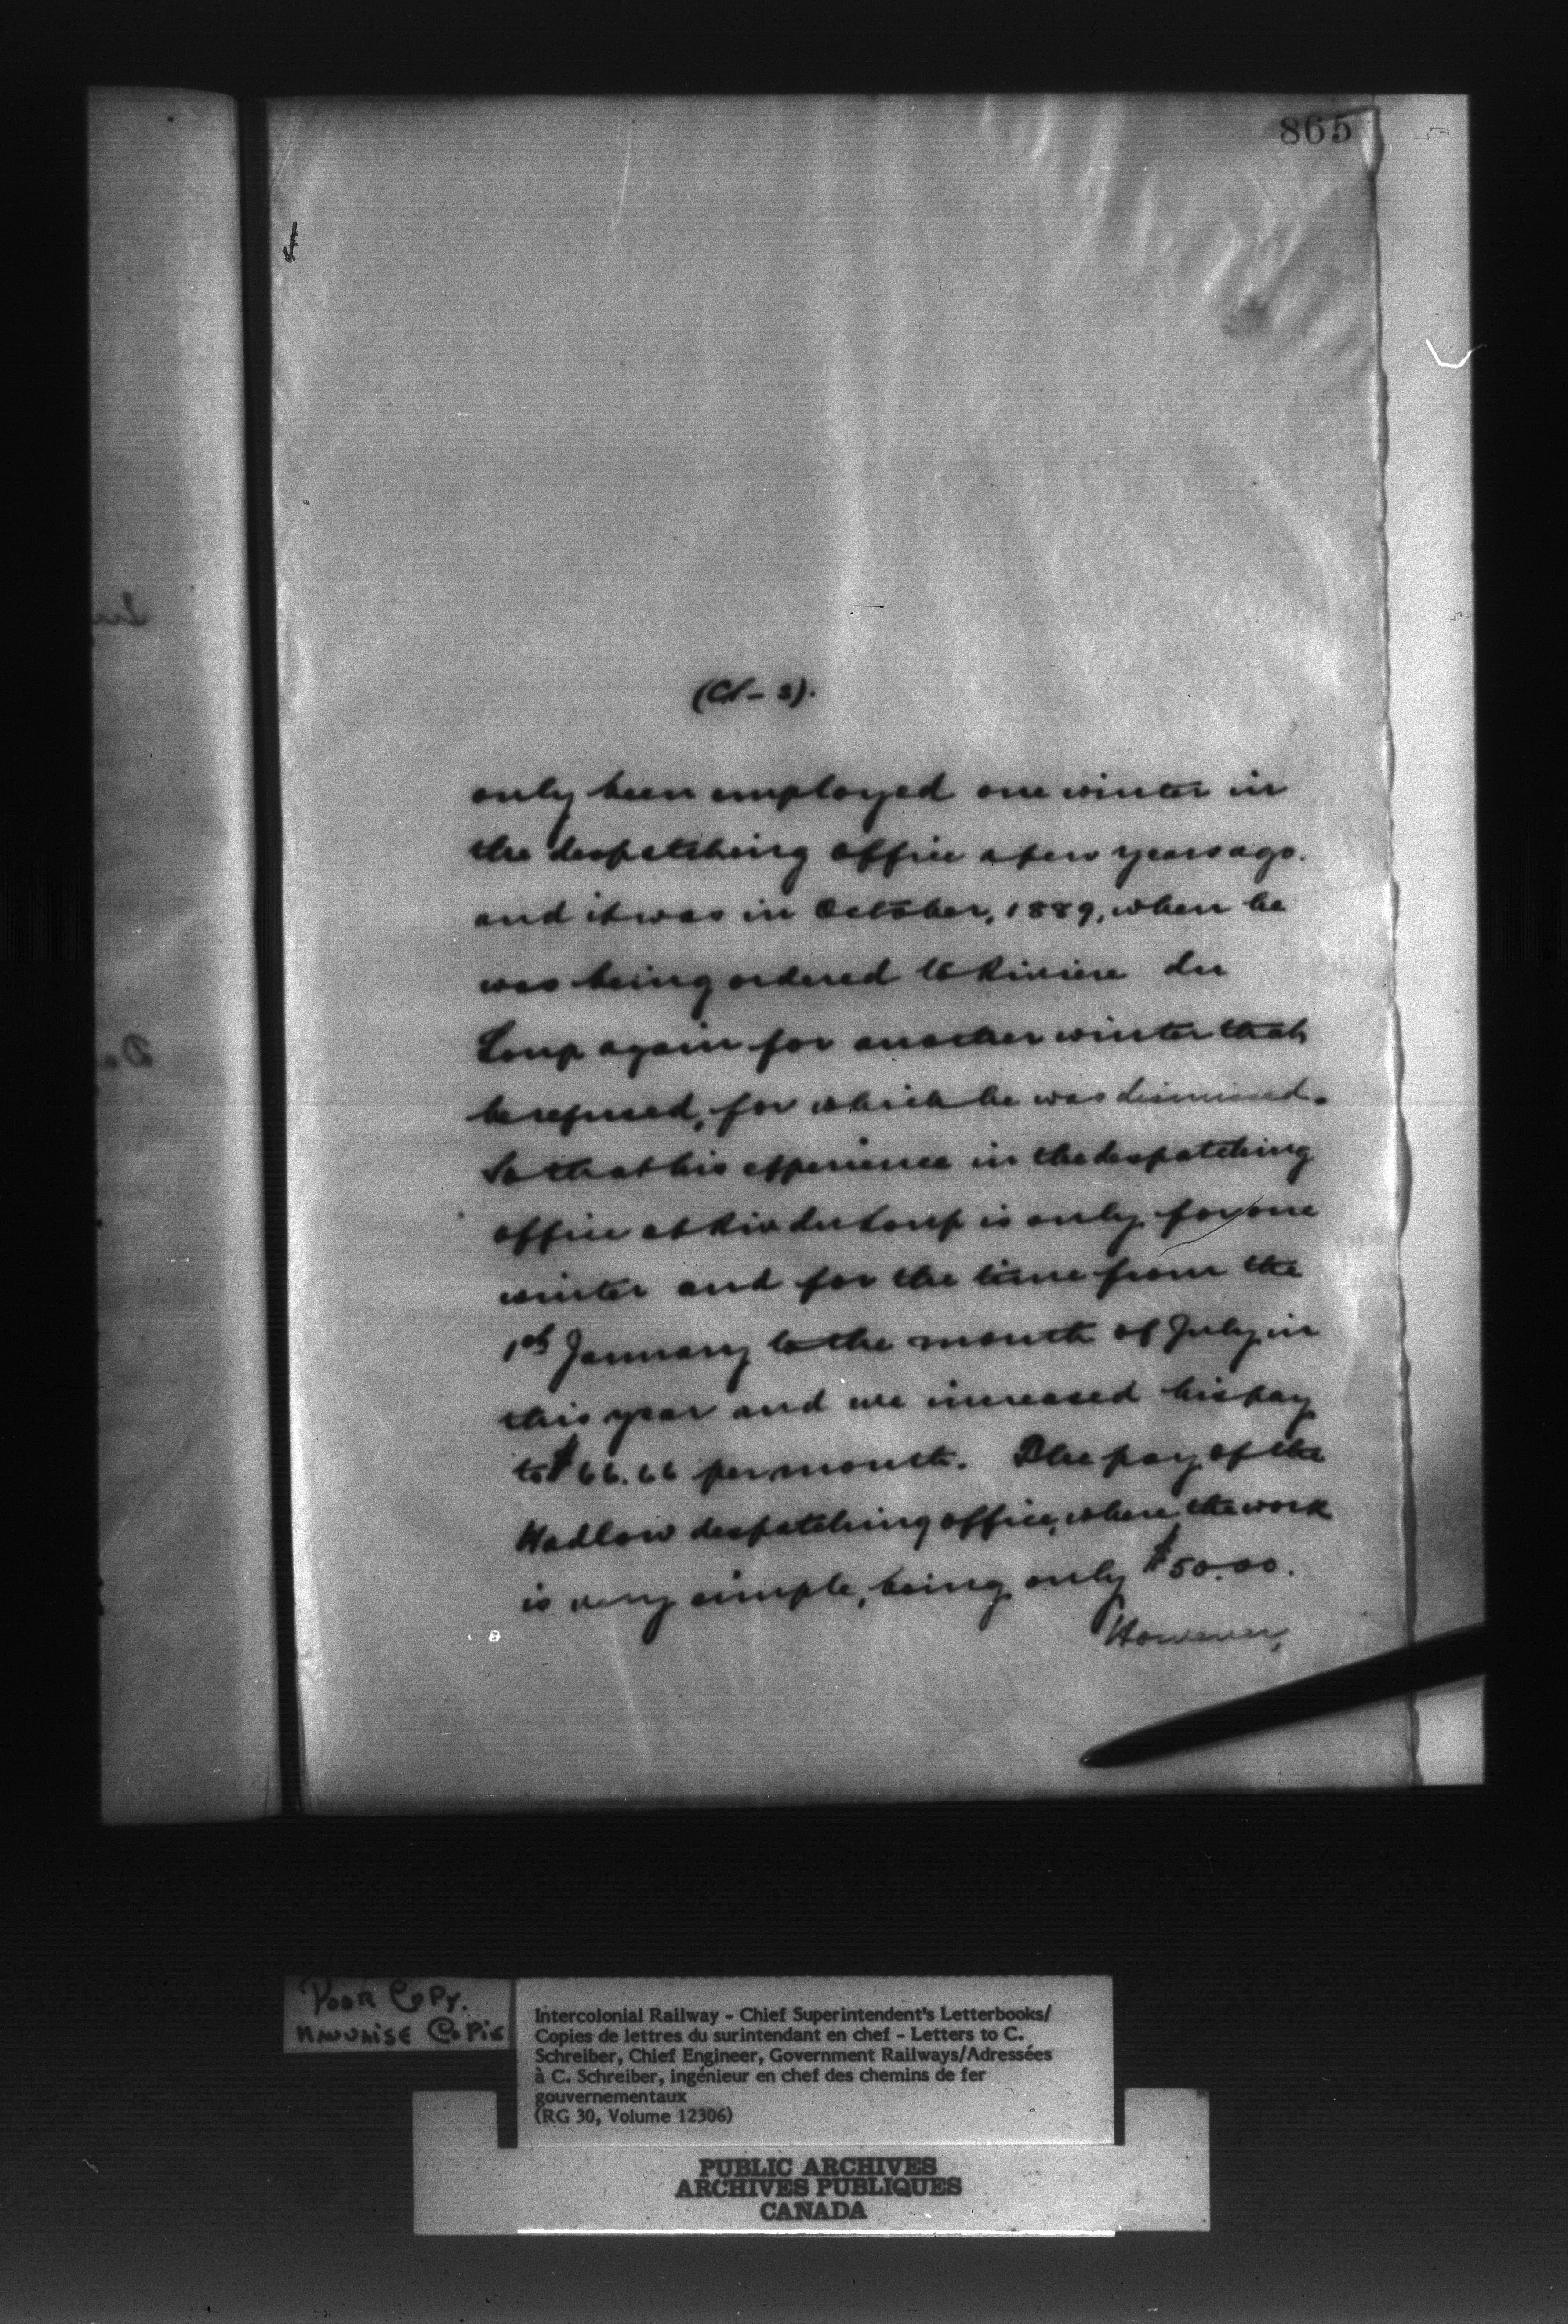 865
(Cl - 3).
only been employed one winter in
the despatching office a few years ago.
and it was in October, 1889, when he
was being ordered to Riviere du
Loup again for another winter that
he refused, for which he was dismissed.
So that his experience in the despatching
office at Riv du Loup is only for one
winter and for the time from the
1st January to the month of July in
this year and we increased his pay
to $66.66 per month. The pay of the
Hadlow despatching office, where the work
is very simple, being only $50.00.
However,
POOR COPY.
MAUVAISE COPIE
Intercolonial Railway - Chief Superintendent's Letterbooks/
Copies de lettres du surintendant en chef - Letters to C.
Schreiber, Chief Engineer, Government Railways/Adressées
à C. Schreiber, ingénieur en chef des chemins de fer
gouvernementaux
(RG 30, Volume 12306)
PUBLIC ARCHIVES
ARCHIVES PUBLIQUES
CANADA